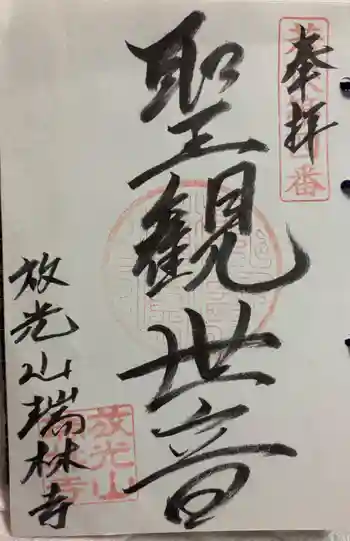 奉拝
聖観世音
放光山瑞林寺
放光山